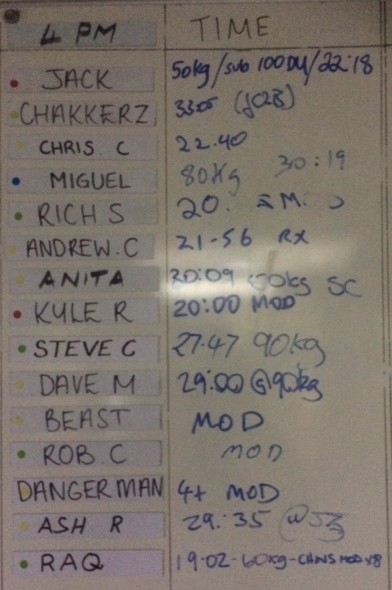 4 PM TIME
JACK 50kg/sub 100DU/22:18
CHAKKERZ
CHRIS. C 22.40
MIGUEL 80kg 30:19
RICH S 20.
ANDREW.C 21-56 RX
ANITA 20:09 50kg SC
KYLE R 20:00 MOD
STEVE C 27.47 90kg
DAVE M 29:00 @90kg
BEAST MOD
ROB.C MOD
DANGERMAN 4+ MOD
ASH R 29:35
RAQ 19-02-60kg-